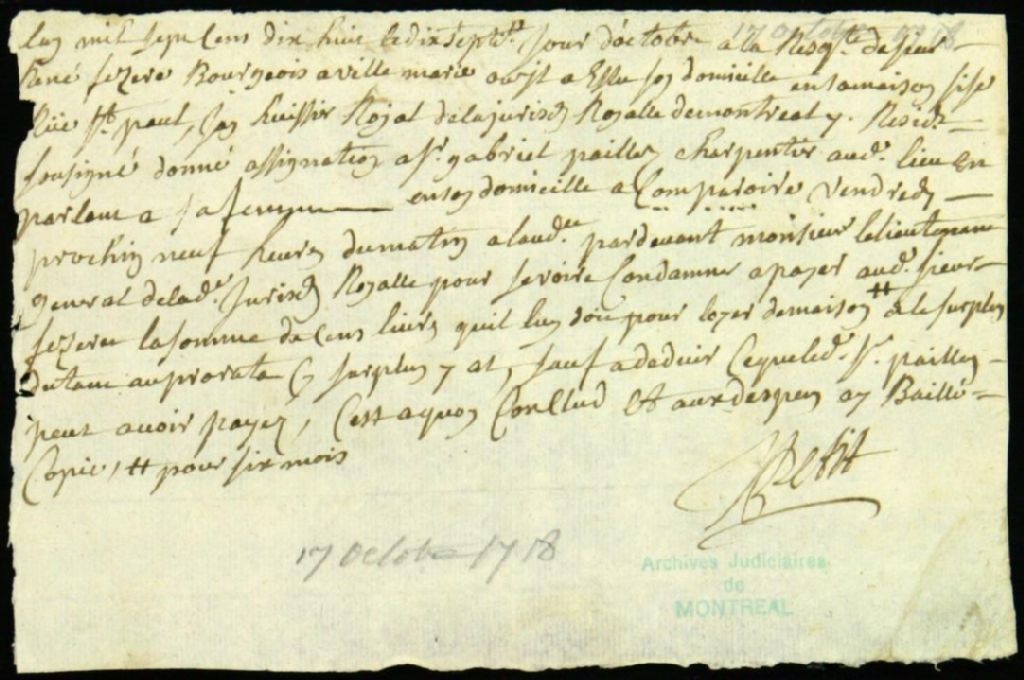 17 Octobre 1718
Lan mil sept Cens dix huit le dix septe. Jour d'octobre a la Reqte. de sieur
René fezeret Bourgeois a ville marie ou jl a Eslu son domicille en sa maison sise
Rüe St. paul, Jay huissier Royal de la jurison Royalle de montreal y. Resedt.
sousigné donné assignation a Sr. gabriel paillez charpentier aud. lieu En
parlant a sa femme en son domicille a Comparoire Vendredy
prochin neuf heures du matin a laud.ce pardevant monsieur le lieutenant
general de lad. Jurison Royalle pour se voire Condamner a payer aud. sieur
fezeret la somme de Cens livres quil luy doit pour loyer de maison # et le surplus
du tans au prorata sy surplus y at, sauf a deduir Ce que led. Sr. paillez
peut avoir payez, C'est a quoy Conclud Et aux despens ay Baillé
Copie, # pour six mois
Petit
17 Octobre 1718
Archives Judiciaires
de
MONTREAL